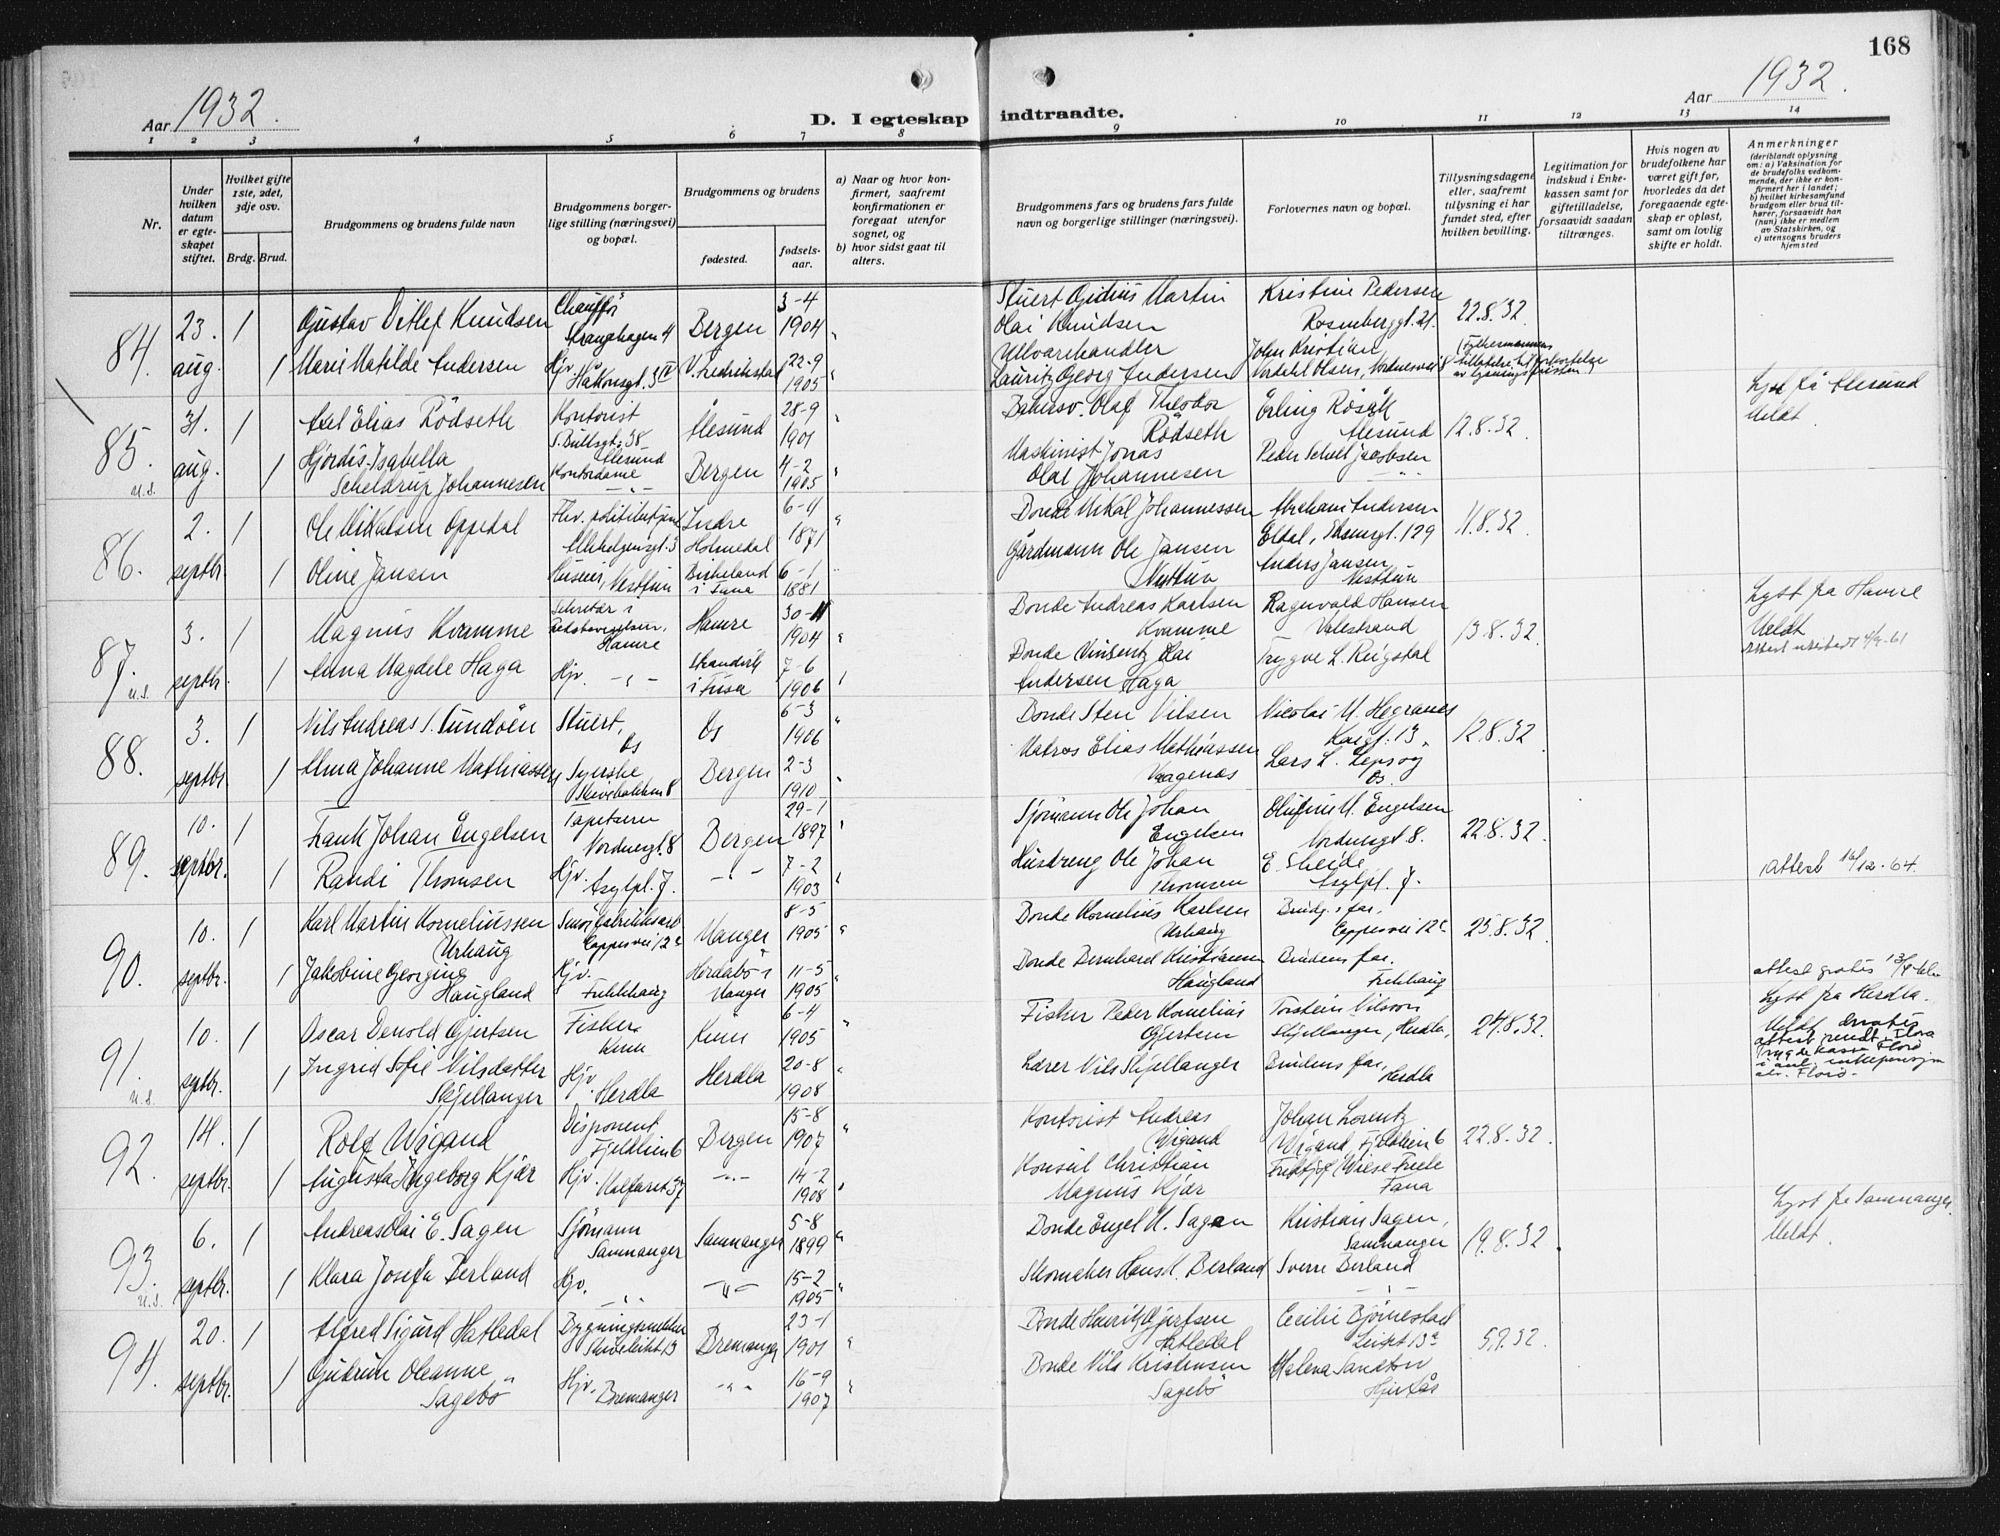 168
Aar 1932.
Aar 1932.
D. I egteskap indtraadte.
1 2 3 4 5 6 7 8 9 10 11 12 13 14
Nr.
Under hvilken datum er egteskapet stiftet.
Hvilket gifte 1ste, 2det, 3dje osv.
Brdg. Brud.
Brudgommens og brudens fulde navn
Brudgommens borgerlige stilling (næringsvei) og bopæl.
Brudgommens og brudens
fødested.
fødselsaar.
a) Naar og hvor konfirmert, saafremt konfirmationen er foregaat utenfor sognet, og
b) hvor sidst gaat til alters.
Brudgommens fars og brudens fars fulde navn og borgerlige stillinger (næringsvei).
Forlovernes navn og bopæl.
Tillysningsdagene eller, saafremt tillysning ei har fundet sted, efter hvilken bevilling.
Legitimation for indskud i Enkekassen samt for giftetilladelse, forsaavidt saadan tiltrænges.
Hvis nogen av brudefolkene har været gift før, hvorledes da det foregaaende egteskap er opløst, samt om lovlig skifte er holdt.
Anmerkninger (deriblandt oplysning om: a) Vaksination for de brudefolks vedkommende, der ikke er konfirmert her i landet; b) hvilket kirkesamfund brudgom eller brud tilhører, forsaavidt han (hun) ikke er medlem av Statskirken, og c) utensogns bruders hjemsted
84. 23. aug. 1 Gustav Ditlef Knudsen Chauffør Strangehagen 4 Bergen 3-4 1904 Stuert Gidius Martin Olai Knudsen Kristine Pedersen Rosenberggt. 21. 22.8.32.
1 Marie Matilde Andersen Hjv. Håkonsgt. 3 V. Fredrikstad 22-9 1905 Ullvarehandler Lauritz Georg Andersen John Kristian Olsen,
85. u.s. 31. aug. 1 Axel Elias Rödseth Kontorist 38 Ålesund Ålesund 28-9 1901 Olaf Theodor Rödseth Erling Ålesund 12.8.32. Lyst få Ålesund Meldt.
1 Hjördis Isabella Scheldrup Johannesen Kontordame Bergen 4-2 1905 Maskinist Jonas Olai Johannesen Peder Schelt Jacobsen
86. 2. septbr. 1 Ole Mikalsen Oppedal Allehelgensgt. 3 Indre Holmedal 6-11 1871 Bonde Mikal Johannessen Abraham Andersen Eldal, 129 11.8.32.
1 Oline Jansen Nesttun Birkeland i Fana 6-1 1881 Gårdmann Ole Jansen Nesttun Anders Jansen Nesttun
87. u.s. 3. septbr. 1 Magnus Kvamme Sekretær i Hamre Hamre 30-11 1904 Bonde Andreas Karlsen Kvamme Ragnvald Hansen Valestrand 13.8.32. Lyst fra Hamre Meldt.
1 Anna Magdele Haga Hjv. Strandvik i Fusa 7-6 1906 Bonde Vinsentz Olai Andersen Haga Trygve L. Reigstal
88. 3. septbr. 1 Nils Andreas S. Sundøen Stuert, Os Os 6-3 1906 Bonde Sten Nilsen Nicolai M. Hegranes 13. 12.8.32.
1 Alma Johanne Mathiassen Syerske Bergen 2-3 1910 Matros Elias Mathiassen Lars L. Lepsøy Os.
89. 10. septbr. 1 Frank Johan Engelsen Nordnesgt. 8 Bergen 29-1 1897 Sjømann Ole Johan Engelsen Olufine M. Engelsen Nordnesgt 8. 22.8.32.
1 Randi Thomsen Hjv. Asylpl. 7. 7-2 1903 Ole Johan Thomsen E. Skeide Asylpl. 7. Attest 16/12-64.
90. 10. septbr. 1 Karl Martin Korneliussen Urhaug Manger 8-5 1905 Bonde Kornelius Karlsen Urhaug Brudg.s far, 25.8.32.
1 Jakobine Georgine Haugland Hjv. Frekhaug Hordabø i Manger 11-5 1905 Bonde Bernhard Kristiansen Haugland Brudens far. Frekhaug
91. u.s. 10. septbr. 1 Oscar Denold Gjertsen Fisker Kinn Kinn 6-4 1905 Fisker Peder Kornelius Gjertsen Torstein Nilsson Skjellanger, Herdla, 27.8.32. Lyst fra Herdla. Meldt
1 Ingrid Sofie Nilsdatter Skjellanger Hjv. Herdla Herdla 20-8 1908 Lærer Nils Skjellanger Brudens far, Herdla
92. 14. septbr. 1 Rolf Wigand Disponent Fjeldlien 6 Bergen 15-8 1907 Kontorist Andreas Wigand Johan Lorentz Wigand Fjeldlien 6 22.8.32.
1 Augusta Ingeborg Kjær Hjv. Kalfaret 37 14-2 1908 Konsul Christian Magnus Kjær Fridtjof Wiese Friele Fana
93. u.s. 6. septbr. 1 Andreas Olai E. Sagen Sjømann Samnanger Samnanger 5-8 1899 Bonde Engel M. Sagen Kristian Sagen, Samnanger 19.8.32. Lyst fra Samnanger Meldt.
1 Klara Josefa Berland Hjv. 15-2 1905 Skomaker Hans M. Berland Sverre Berland
94. 20. septbr. 1 Alfred Sigurd Hatledal Bremanger 23-1 1901 Bonde Henrik Gjertsen Hatledal Cecilie Bjørnestad 5.9.32.
1 Gudrun Oleanne Sagebø Hjv. Bremanger 16-9 1907 Bonde Nils Kristensen Sagebø Malena Sandtor